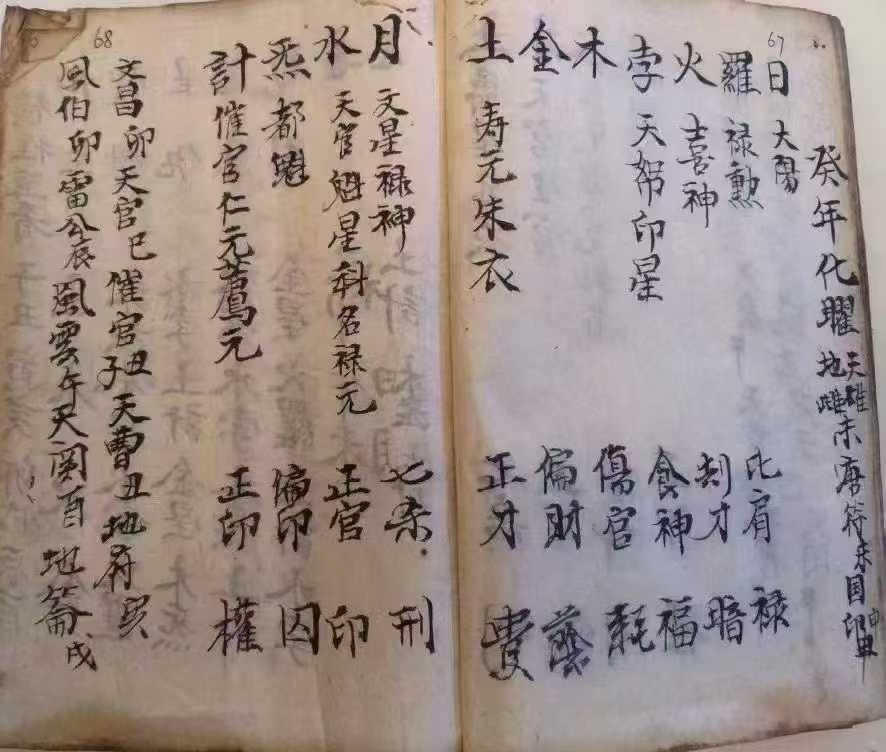 67
癸年化曜 天雄 地雌 未唐符未国印申
日 太陽 比肩 禄
羅 禄勲 刦才 暗
火 喜神 食神 福
孛 天帑印星 傷官 耗
木 偏財
金 正才
土 寿元朱衣 貴
68
月 文星禄神 七杀 刑
水 天官魁星科名禄元 正官 印
炁 都魁 偏印 囚
計 催官仁元薦元 正印 權
文昌卯天官巳催官子丑天曹丑地府寅
風伯卯雷公辰風雲午天関酉地𥮾戌